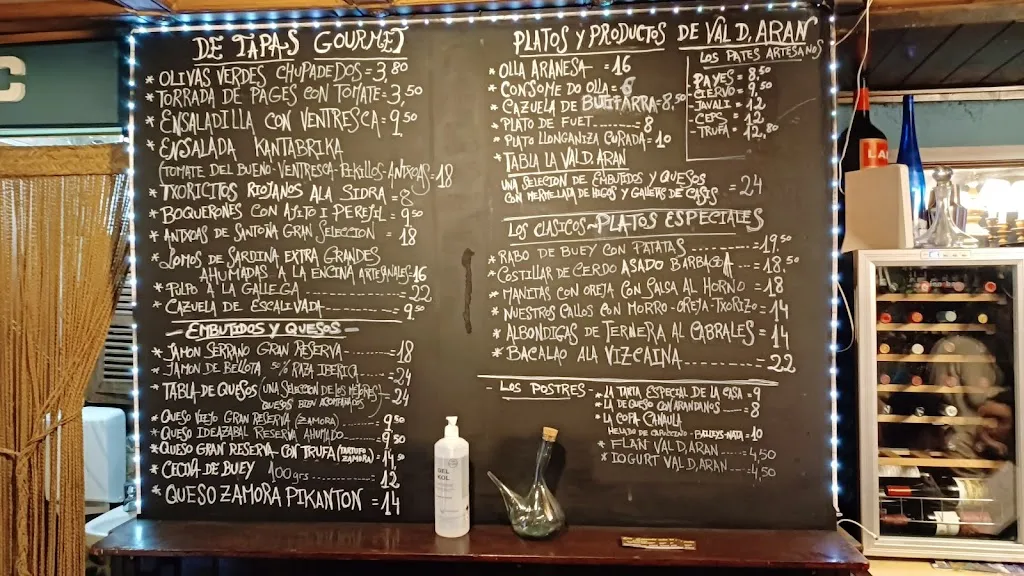 DE TAPAS GOURMET
* OLIVAS VERDES CHUPADEDOS = 3,80
* TORRADA DE PAGES CON TOMATE = 3,50
* ENSALADILLA CON VENTRESCA = 9,50
* ENSALADA KANTABRIKA
(TOMATE DEL BUENO-VENTRESCA-PEKILLOS-ANTXOAS) = 18
* TXORICITOS RIOJANOS ALA SIDRA = 8
* BOQUERONES CON AJITO I PEREJIL = 9,50
* ANTXOAS DE SANTOÑA GRAN SELECCION = 18
* LOMOS DE SARDINA EXTRA GRANDES
AHUMADAS A LA ENCINA ARTESANALES = 16
* PULPO A LA GALLEGA -------- = 22
* CAZUELA DE ESCALIVADA -------- = 9,50
- EMBUTIDOS Y QUESOS -
* JAMON SERRANO GRAN RESERVA ------ = 18
* JAMON DE BELLOTA 50% RAZA IBERICA ---- = 24
* TABLA DE QUESOS (UNA SELECCION DE LOS MEJORES
QUESOS BIEN ACOMPAÑADOS) = 24
* QUESO VIEJO GRAN RESERVA (ZAMORA) ---- = 9,50
* QUESO IDEAZABAL RESERVA AHUMADO ---- = 9,50
* QUESO GRAN RESERVA CON TRUFA (TARTUFA ZAMORA) = 14,50
* CECINA DE BUEY 100 grs ------ = 12
* QUESO ZAMORA PIKANTON = 14
PLATOS Y PRODUCTOS DE VAL D, ARAN
* OLLA ARANESA --- = 16
* CONSOME DO OLLA = 8
* CAZUELA DE BUTIFARRA = 8,50
* PLATO DE FUET ------ = 8
* PLATO LLONGANIZA CURADA = 10
* TABLA LA VAL D, ARAN
UNA SELECION DE EMBUTIDOS Y QUESOS
CON MERMELADA DE HIGOS Y GALLETAS DE CASIS ---- = 24
LOS PATES ARTESANOS
- PAYES = 8,50
- CIERVO = 9,50
- JAVALI = 12
- CEPS = 12
- TRUFA = 12,80
LOS CLASICOS - PLATOS ESPECIALES
* RABO DE BUEY CON PATATAS -------- = 19,50
* COSTILLAR DE CERDO ASADO BARBACOA --- = 18,50
* MANITAS CON OREJA CON SALSA AL HORNO = 18
* NUESTROS CALLOS CON MORRO-OREJA-TXORIZO = 14
* ALBONDIGAS DE TERNERA AL CABRALES = 14
* BACALAO ALA VIZCAINA ------ = 22
- LOS POSTRES -
* LA TARTA ESPECIAL DE LA CASA = 9
* LA DE QUESO CON ARANDANOS --- = 8
* LA COPA CANAULA
HELADO DE CARAMELO BAILEYS-NATA = 10
* FLAN VAL D, ARAN ------ = 4,50
* IOGURT VAL D, ARAN ----- = 4,50
GEL
KOL
C
LA